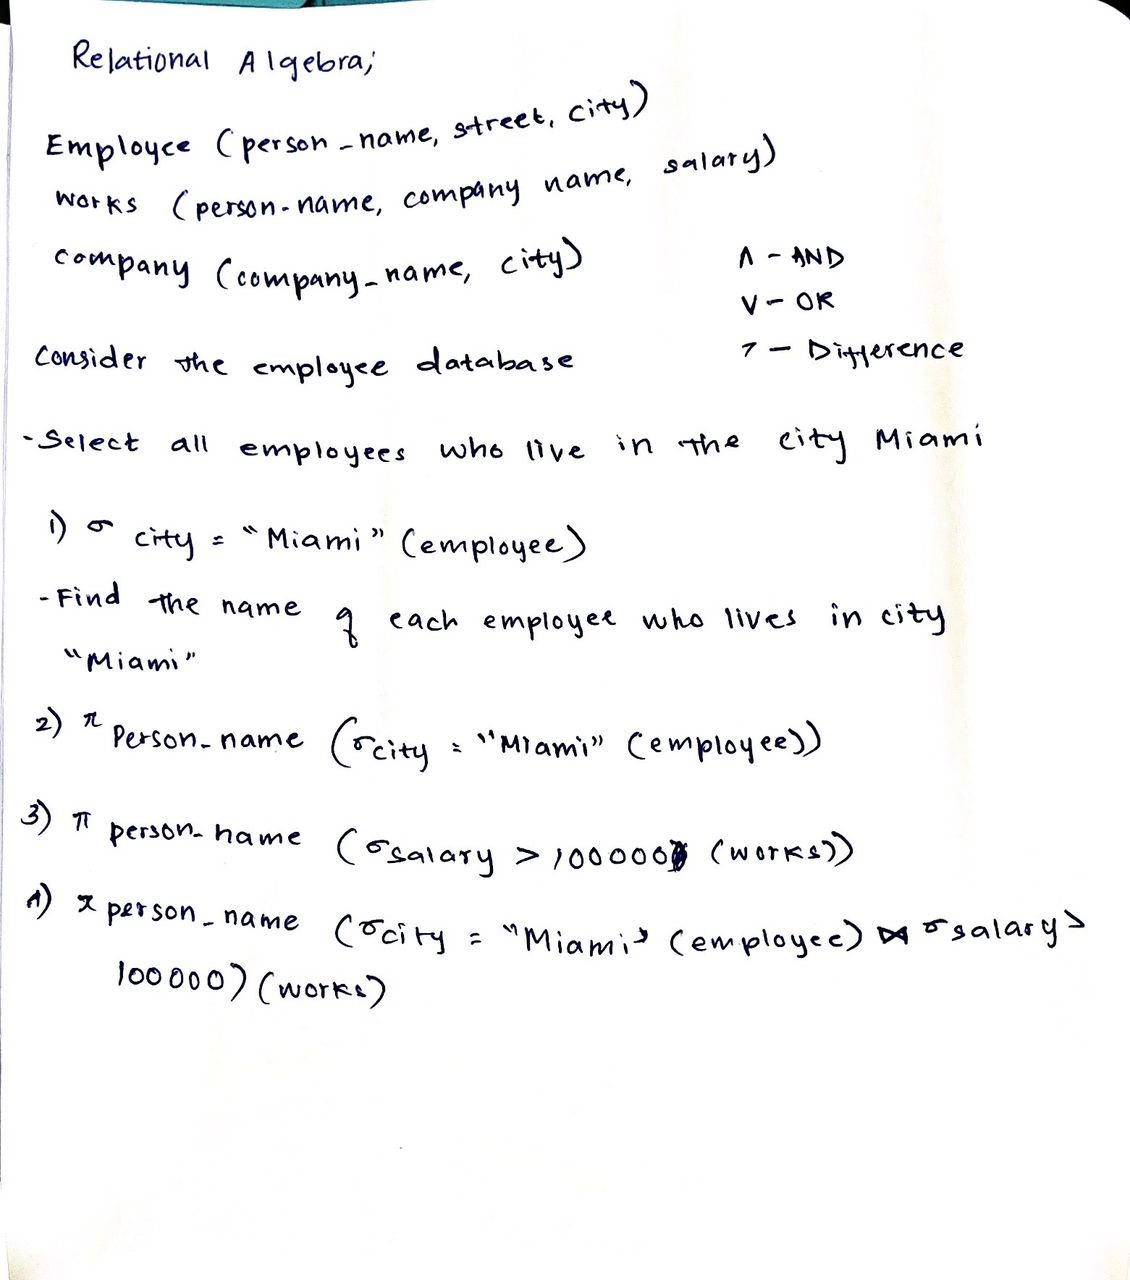 Relational Algebra;
Employee (person_name, street, city)
works (person-name, company name, salary)
company (company_name, city)
∧ - AND
∨ - OR
7 - Difference
Consider the employee database
- Select all employees who live in the city Miami
1) σ city = "Miami" (employee)
- Find the name of each employee who lives in city
"Miami"
2) π Person_name (σcity = "Miami" (employee))
3) π person-name (σsalary > 100000 (works))
4) π person_name (σcity = "Miami" (employee) ⋈ σsalary>
100000) (works)